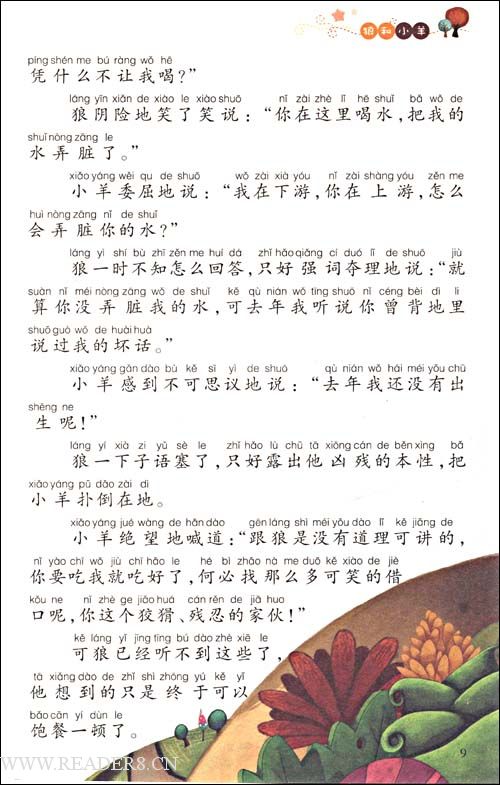 狼和小羊
píng shén me bú ràng wǒ hē
凭什么不让我喝?”
láng yīn xiǎn de xiào le xiào shuō nǐ zài zhè lǐ hē shuǐ bǎ wǒ de
狼阴险地笑了笑说:“你在这里喝水,把我的
shuǐ nòng zāng le
水弄脏了。”
xiǎo yáng wěi qu de shuō wǒ zài xià yóu nǐ zài shàng yóu zěn me
小羊委屈地说:“我在下游,你在上游,怎么
huì nòng zāng nǐ de shuǐ
会弄脏你的水?”
láng yì shí bù zhī zěn me huí dá zhǐ hǎo qiǎng cí duó lǐ de shuō jiù
狼一时不知怎么回答,只好强词夺理地说:“就
suàn nǐ méi nòng zāng wǒ de shuǐ kě qù nián wǒ tīng shuō nǐ céng bèi dì li
算你没弄脏我的水,可去年我听说你曾背地里
shuō guò wǒ de huài huà
说过我的坏话。”
xiǎo yáng gǎn dào bù kě sī yì de shuō qù nián wǒ hái méi yǒu chū
小羊感到不可思议地说:“去年我还没有出
shēng ne
生呢!”
láng yí xià zi yǔ sè le zhǐ hǎo lù chū tā xiōng cán de běn xìng bǎ
狼一下子语塞了,只好露出他凶残的本性,把
xiǎo yáng pū dǎo zài dì
小羊扑倒在地。
xiǎo yáng jué wàng de hǎn dào gēn láng shì méi yǒu dào lǐ kě jiǎng de
小羊绝望地喊道:“跟狼是没有道理可讲的,
nǐ yào chī wǒ jiù chī hǎo le hé bì zhǎo nà me duō kě xiào de jiè
你要吃我就吃好了,何必找那么多可笑的借
kǒu ne nǐ zhè ge jiǎo huá cán rěn de jiā huo
口呢,你这个狡猾、残忍的家伙!”
kě láng yǐ jīng tīng bú dào zhè xiē le
可狼已经听不到这些了,
tā xiǎng dào de zhǐ shì zhōng yú kě yǐ
他想到的只是终于可以
bǎo cān yí dùn le
饱餐一顿了。
9
WWW.READER8.CN